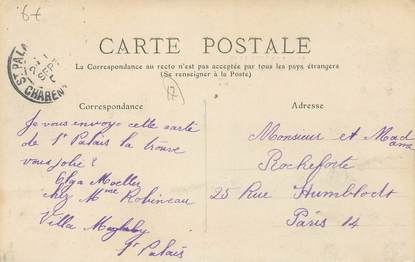 6f
CARTE POSTALE
La Correspondance au recto n'est pas acceptée par tous les pays étrangers
(Se renseigner à la Poste)
ST-PALAIS
CHAREN
Correspondance
17
Je vous envoye cette carte
de St Palais la trouvez
vous jolie?
Elga Moeller
chez Mme Robineau
Villa
St Palais
Adresse
Monsieur et Madame
Rocheforte
25 Rue Humboldt
Paris 14